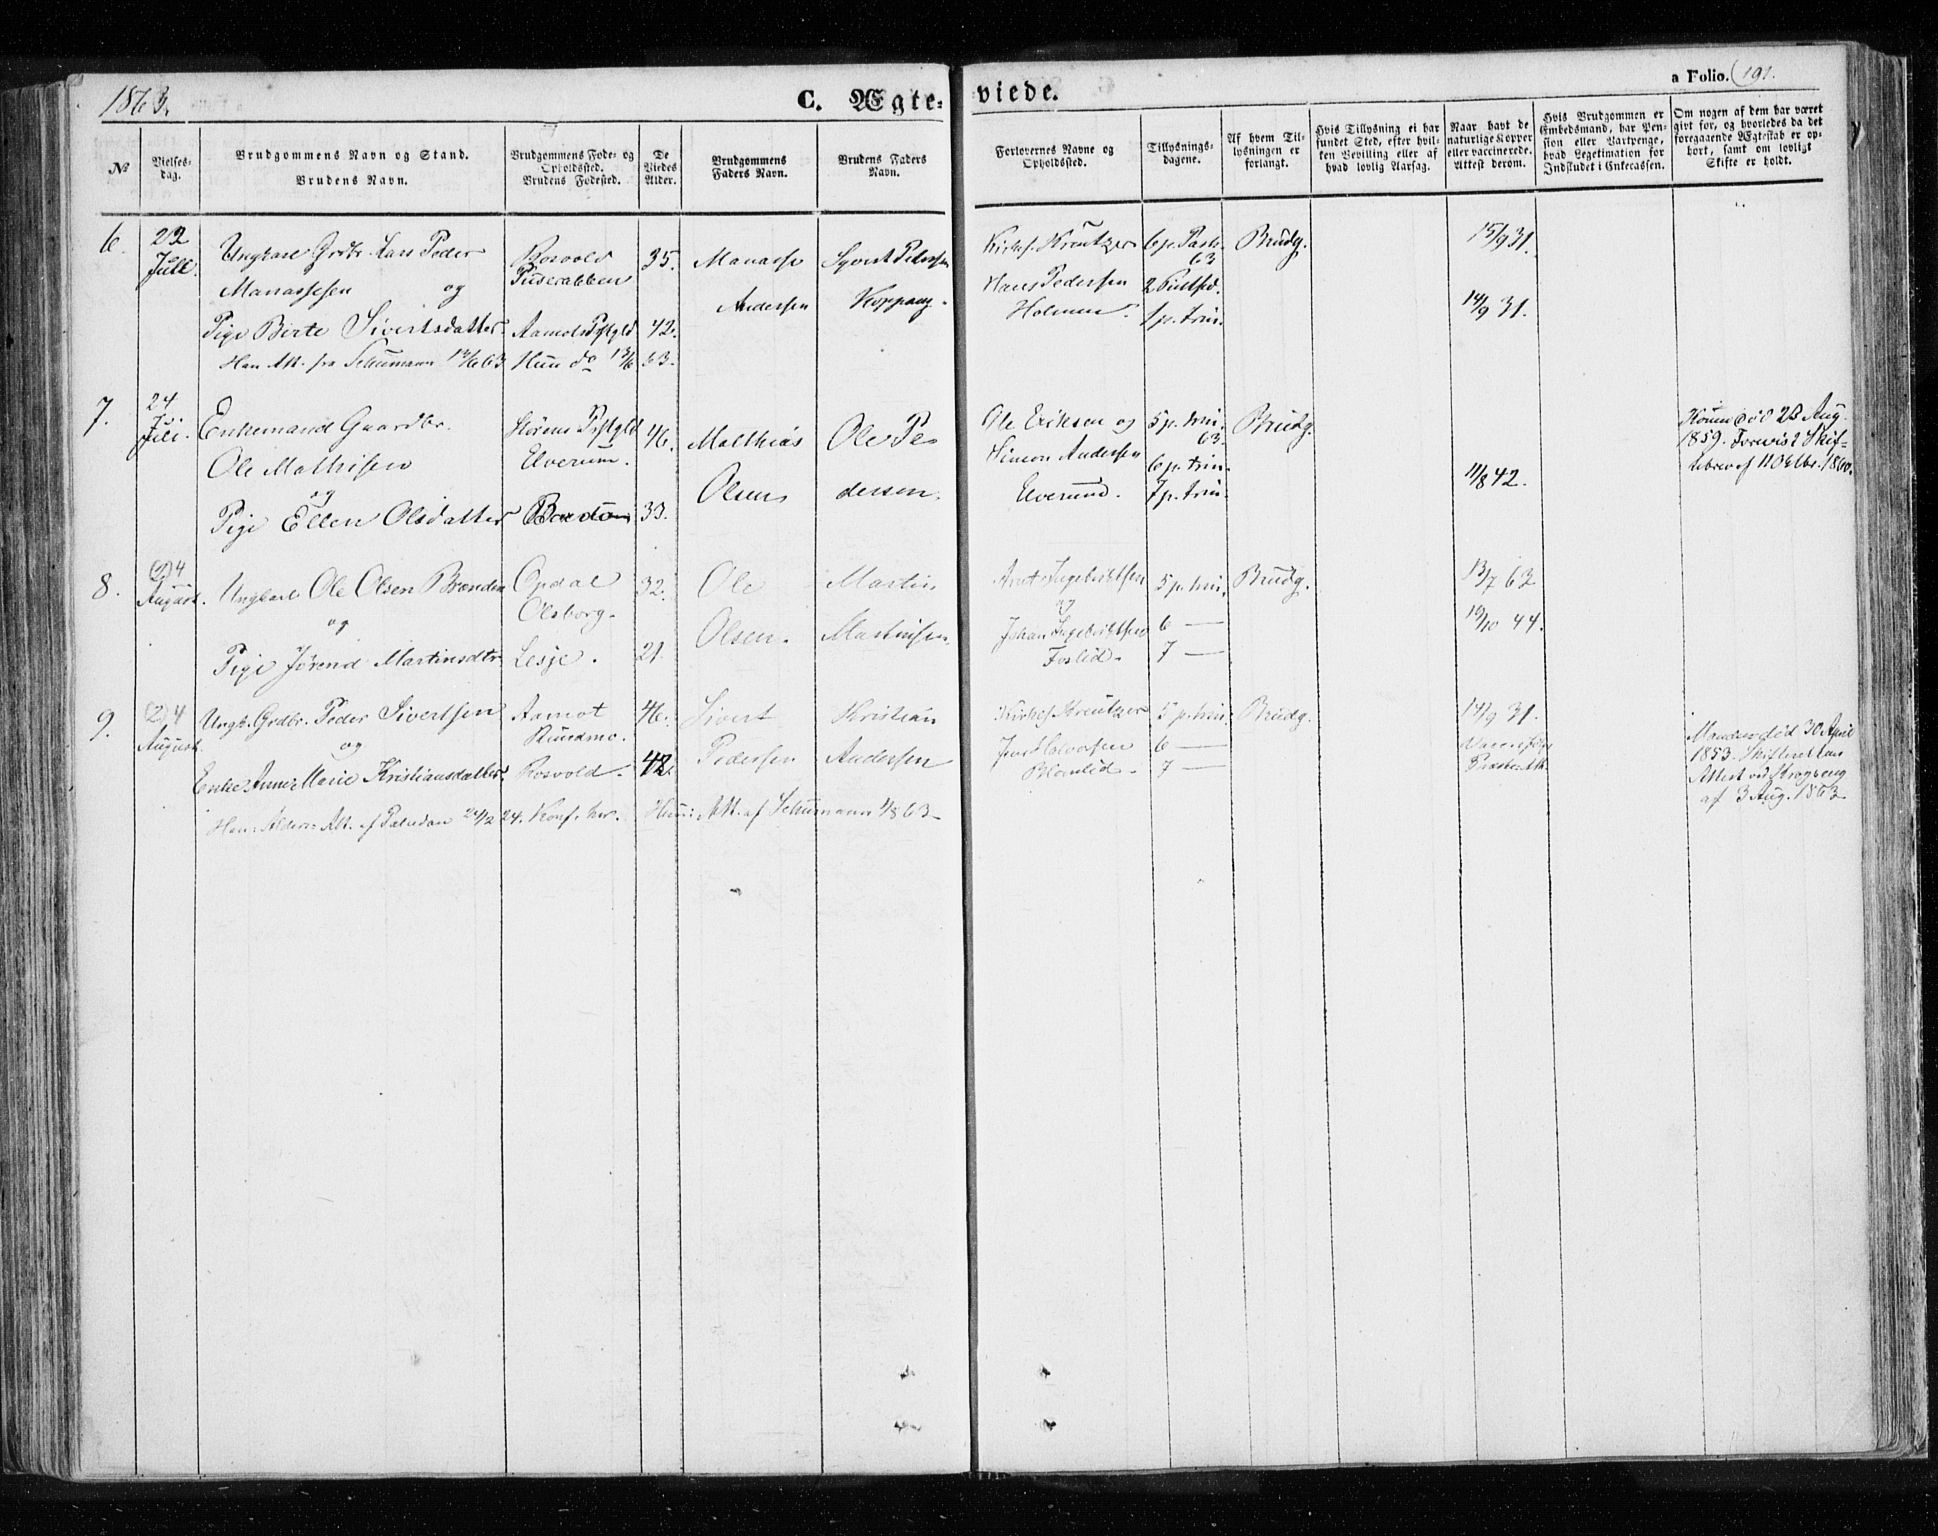 1863.
C. Ægte-
viede.
a Folio. (191.
No
Vielses-
dag.
Brudgommens Navn og Stand.
Brudens Navn.
Brudgommens Føde- og
Opholdssted.
Brudens Fødested.
De
Viedes
Alder.
Brudgommens
Faders Navn.
Brudens Faders
Navn.
Forlovernes Navne og
Opholdssted.
Tillysnings-
dagene.
Af hvem Til-
lysningen er
forlangt.
Hvis Tillysning ei har
fundet Sted, efter hvil-
ken Bevilling eller af
hvad lovlig Aarsag.
Naar havt de
naturlige Kopper
eller vaccinerede.
Attest derom.
Hvis Brudgommen er
Embedsmand, har Pen-
sion eller Vartpenge,
hvad Legetimation for
Indskudet i Enkecassen.
Om nogen af dem har været
givt før, og hvorledes da det
foregaaende Ægteskab er op-
hørt, samt om lovligt
Skifte er holdt.
6.
22
Juli.
Ungkarl Grdbr. Lars Peder
Manassesen og
Pige Birte Sivertsdatter
Han Att. fra Schumann 12/6 63
Rosvold
Aamots Pstgld
Hun do 13/6 63.
35.
42.
Manasse
Andersen
Syvert Pedersen
Koppang.
Kirkes. Kreutzer
Hans Pedersen
Holmen.
6 p. Pask.
63
2 Pintsd.
1 p. trin.
Brudg.
15/9 31.
14/9 31.
7.
24
Juli.
Enkemand Gaardbr.
Ole Mathisen
og
Pige Ellen Olsdatter
Pstgld
Elverum.
Bardo
46.
33.
Matthias
Olsen
Ole Pe-
dersen.
Ole Eriksen og
Simon Andersen
Elverund.
5 p. trin.
63.
6 p. trin.
7 p. trin.
Brudg.
11/8 42.
Konen død 28 Aug.
1859. Forevist Skif-
tebrev af 11 Oktbr. 1860.
8.
(2) 4
August.
Ungkarl Ole Olsen Brænden
og
Pige Jørend Martinsdtr
Opdal
Olsborg.
Lesje.
32.
21.
Ole
Olsen.
Martin
Martinsen
Arnt Ingebrigtsen
og
Johan Ingebrigtsen
Foslid.
5 p. trin.
6 —
7 —
Brudg.
13/7 63
19/10 44.
9.
(2) 4
August.
Ungk. Grdbr. Peder Sivertsen
og
Enke Anne Marie Kristiansdatter
Aamot
Rundmo.
Rosvold.
46.
42.
Sivert
Pedersen
Kristian
Andersen
Kirkes. Kreutzer
Jens Halvorsen
Blomlid.
5 p. trin.
6 —
7 —
Brudg.
14/9 31.
Manden død 30 April
1853. Skifteretten
Attest ved Krogseng
af 3 Aug. 1863
Han: Alders: Att. af Paludan 24/2 24. Konf. her. Hun: Att. af Schumann 4/8 63.